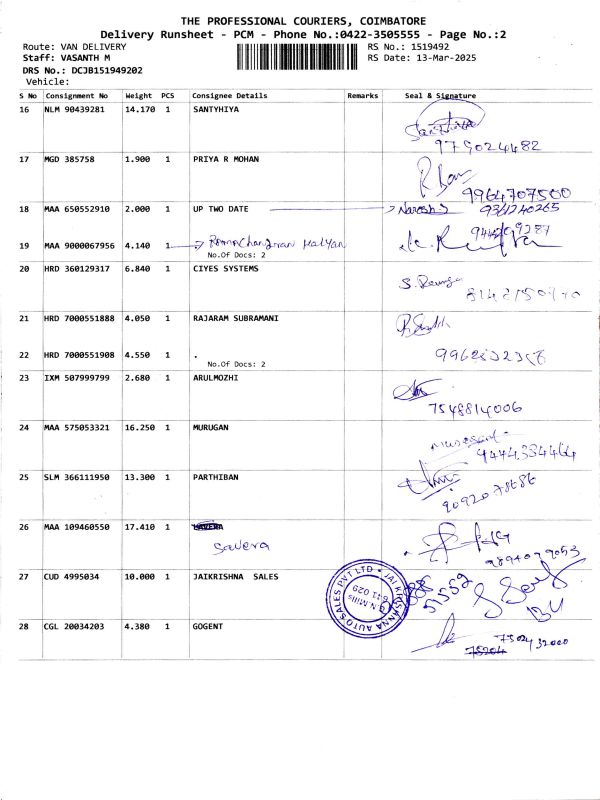 THE PROFESSIONAL COURIERS, COIMBATORE
Delivery Runsheet - PCM - Phone No.:0422-3505555 - Page No.:2
Route: VAN DELIVERY RS No.: 1519492
Staff: VASANTH M RS Date: 13-Mar-2025
DRS No.: DCJB151949202
Vehicle:
S No Consignment No Weight PCS Consignee Details Remarks Seal & Signature
16 NLM 90439281 14.170 1 SANTYHIYA
979024482
17 MGD 385758 1.900 1 PRIYA R MOHAN
9964707500
18 MAA 650552910 2.000 1 UP TWO DATE Naresh S
19 MAA 9000067956 4.140 1 Ramachandran Kalyan
No.Of Docs: 2
20 HRD 360129317 6.840 1 CIYES SYSTEMS
21 HRD 7000551888 4.050 1 RAJARAM SUBRAMANI
22 HRD 7000551908 4.550 1 .
No.Of Docs: 2
23 IXM 507999799 2.680 1 ARULMOZHI
7548814006
24 MAA 575053321 16.250 1 MURUGAN
9444334464
25 SLM 366111950 13.300 1 PARTHIBAN
9092078686
26 MAA 109460550 17.410 1
Savera
9894079053
27 CUD 4995034 10.000 1 JAIKRISHNA SALES
JAI KRISHNAA AUTO SALES PVT LTD
G.N Mills
641 029
28 CGL 20034203 4.380 1 GOGENT